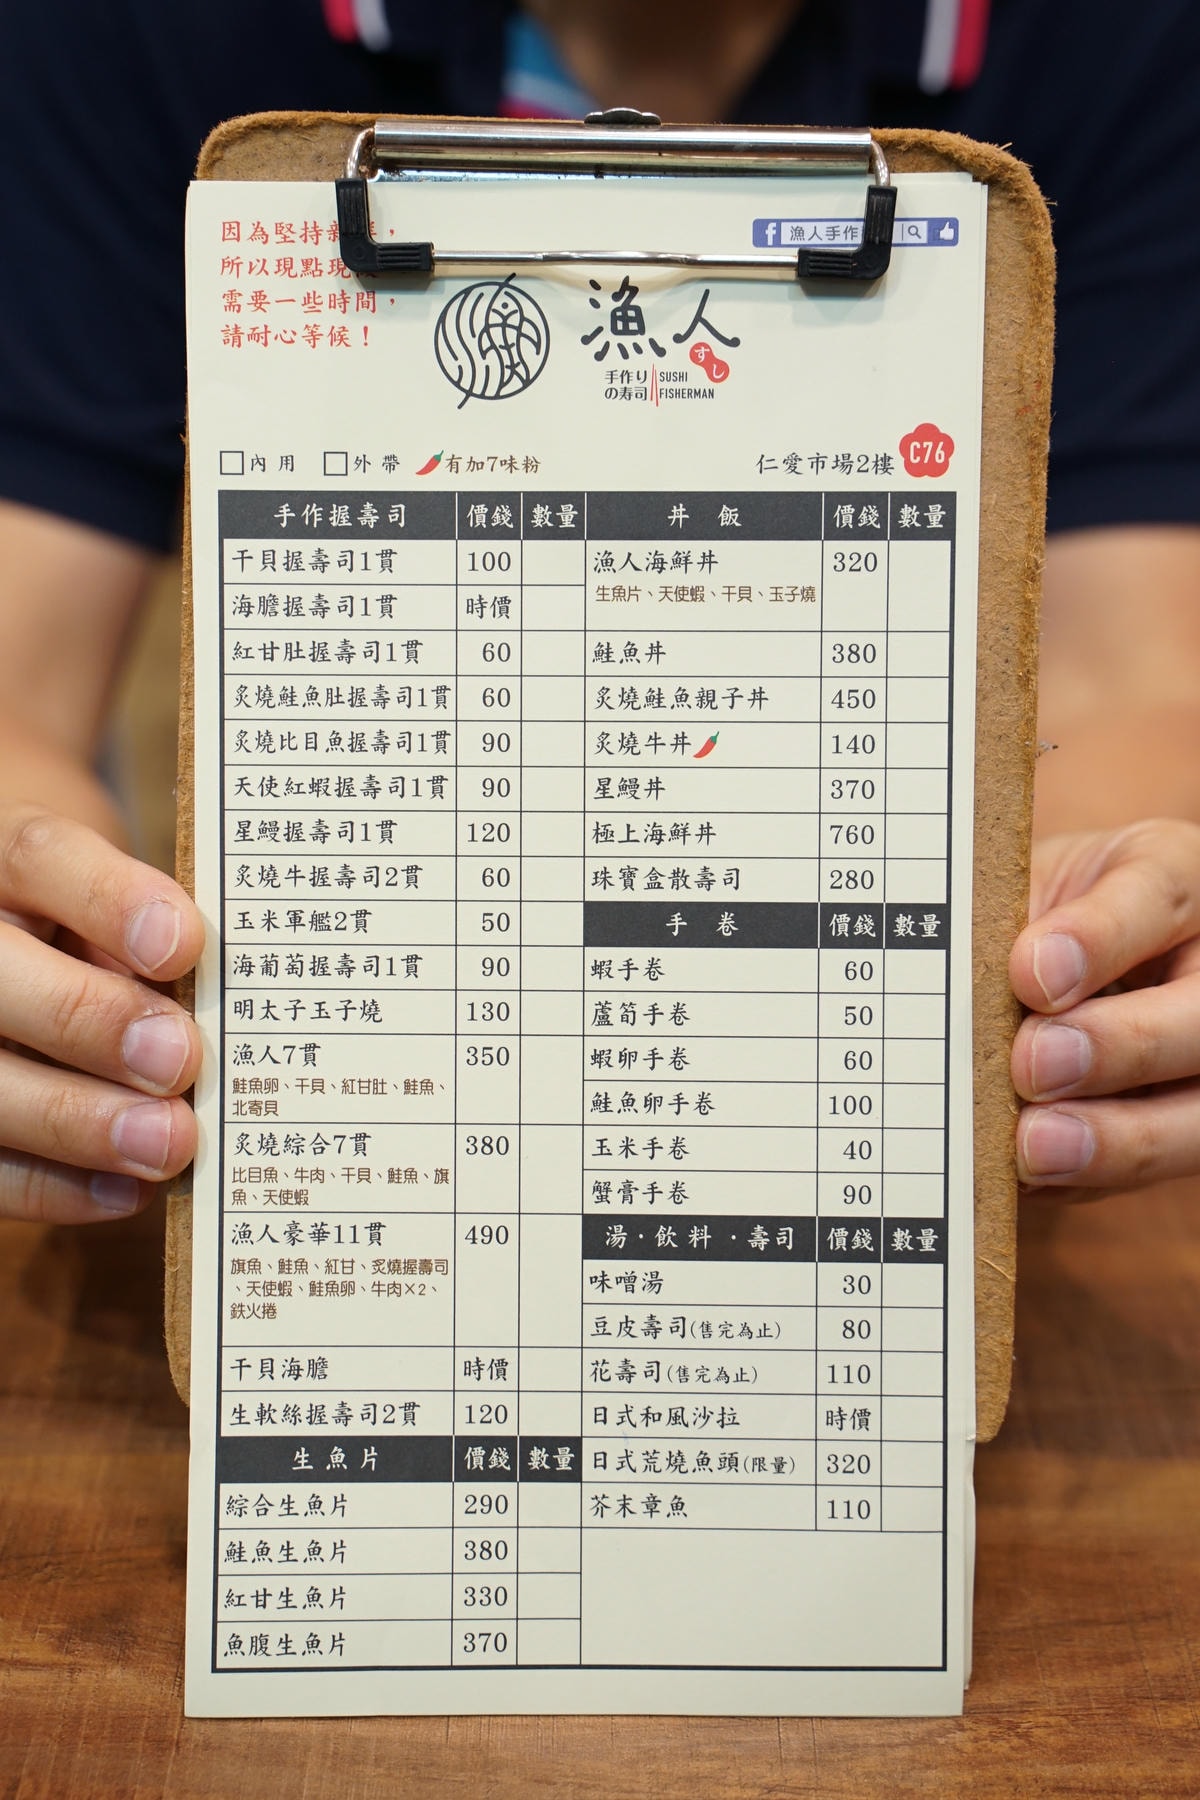 因為堅持新
所以現點現
需要一些時間，
請耐心等候！
漁人手作
漁人
すし
手作り
の寿司
SUSHI
FISHERMAN
內用 外帶 有加7味粉
仁愛市場2樓 C76
手作握壽司 價錢 數量
干貝握壽司1貫 100
海膽握壽司1貫 時價
紅甘肚握壽司1貫 60
炙燒鮭魚肚握壽司1貫 60
炙燒比目魚握壽司1貫 90
天使紅蝦握壽司1貫 90
星鰻握壽司1貫 120
炙燒牛握壽司2貫 60
玉米軍艦2貫 50
海葡萄握壽司1貫 90
明太子玉子燒 130
漁人7貫 350
鮭魚卵、干貝、紅甘肚、鮭魚、
北寄貝
炙燒綜合7貫 380
比目魚、牛肉、干貝、鮭魚、旗
魚、天使蝦
漁人豪華11貫 490
旗魚、鮭魚、紅甘、炙燒握壽司
、天使蝦、鮭魚卵、牛肉×2、
鉄火捲
干貝海膽 時價
生軟絲握壽司2貫 120
生魚片 價錢 數量
綜合生魚片 290
鮭魚生魚片 380
紅甘生魚片 330
魚腹生魚片 370
丼飯 價錢 數量
漁人海鮮丼 320
生魚片、天使蝦、干貝、玉子燒
鮭魚丼 380
炙燒鮭魚親子丼 450
炙燒牛丼 140
星鰻丼 370
極上海鮮丼 760
珠寶盒散壽司 280
手卷 價錢 數量
蝦手卷 60
蘆筍手卷 50
蝦卵手卷 60
鮭魚卵手卷 100
玉米手卷 40
蟹膏手卷 90
湯・飲料・壽司 價錢 數量
味噌湯 30
豆皮壽司(售完為止) 80
花壽司(售完為止) 110
日式和風沙拉 時價
日式荒燒魚頭(限量) 320
芥末章魚 110